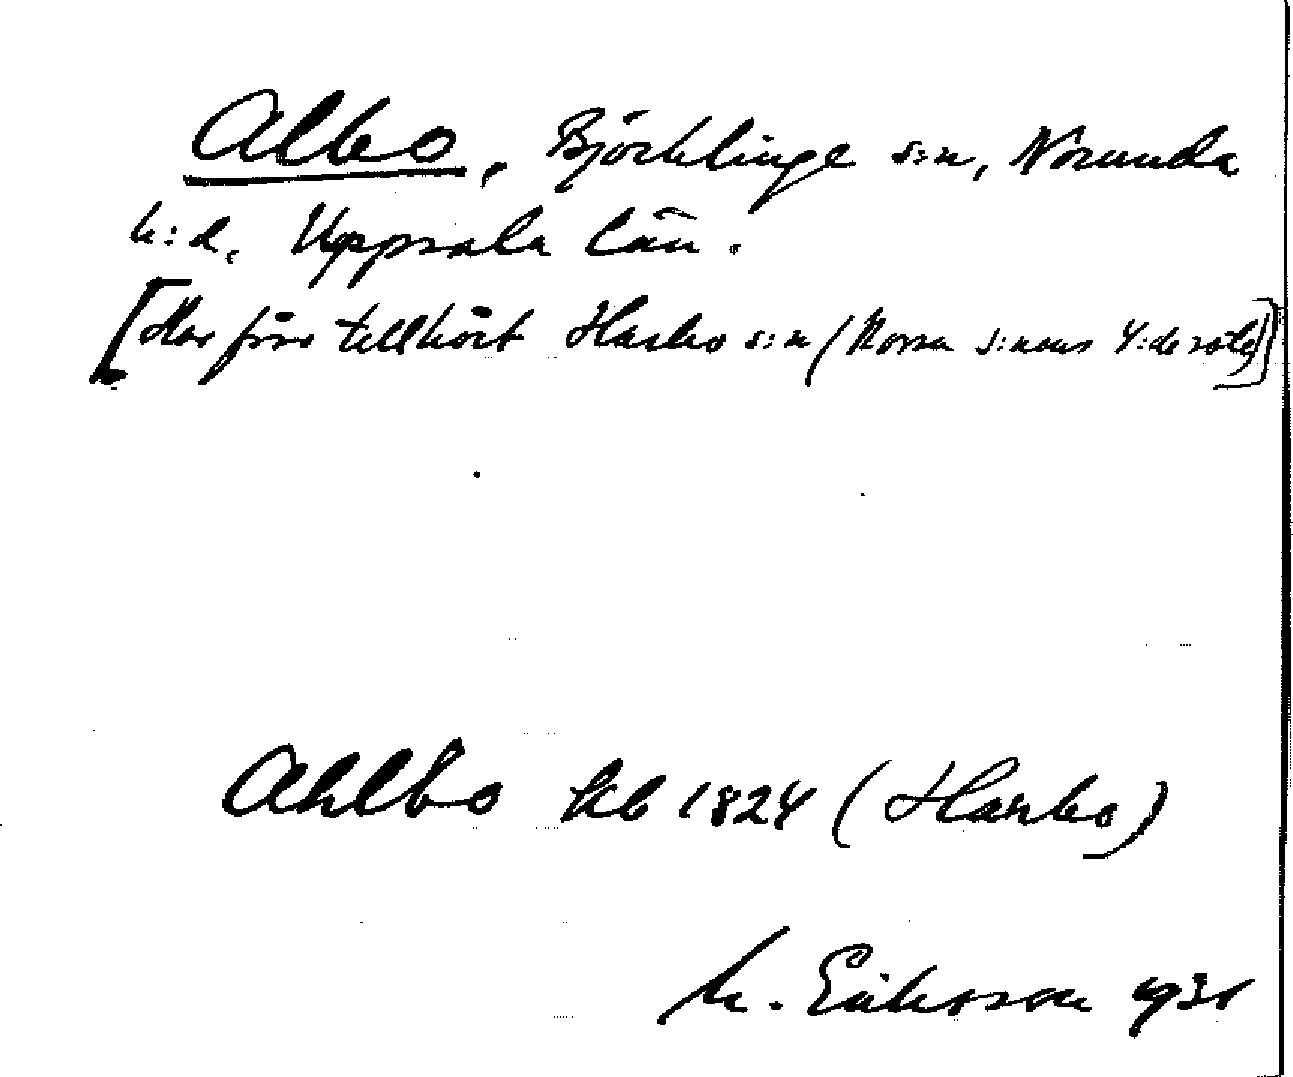 Albo, Björklinge s:n, Norunda
h:d, Uppsala län.
[Har förr tillhört Harbo s:n (Norra s:nens 4:de rote)]
Ahlbo hfl 1824 (Harbo)
M. Eriksson 1931